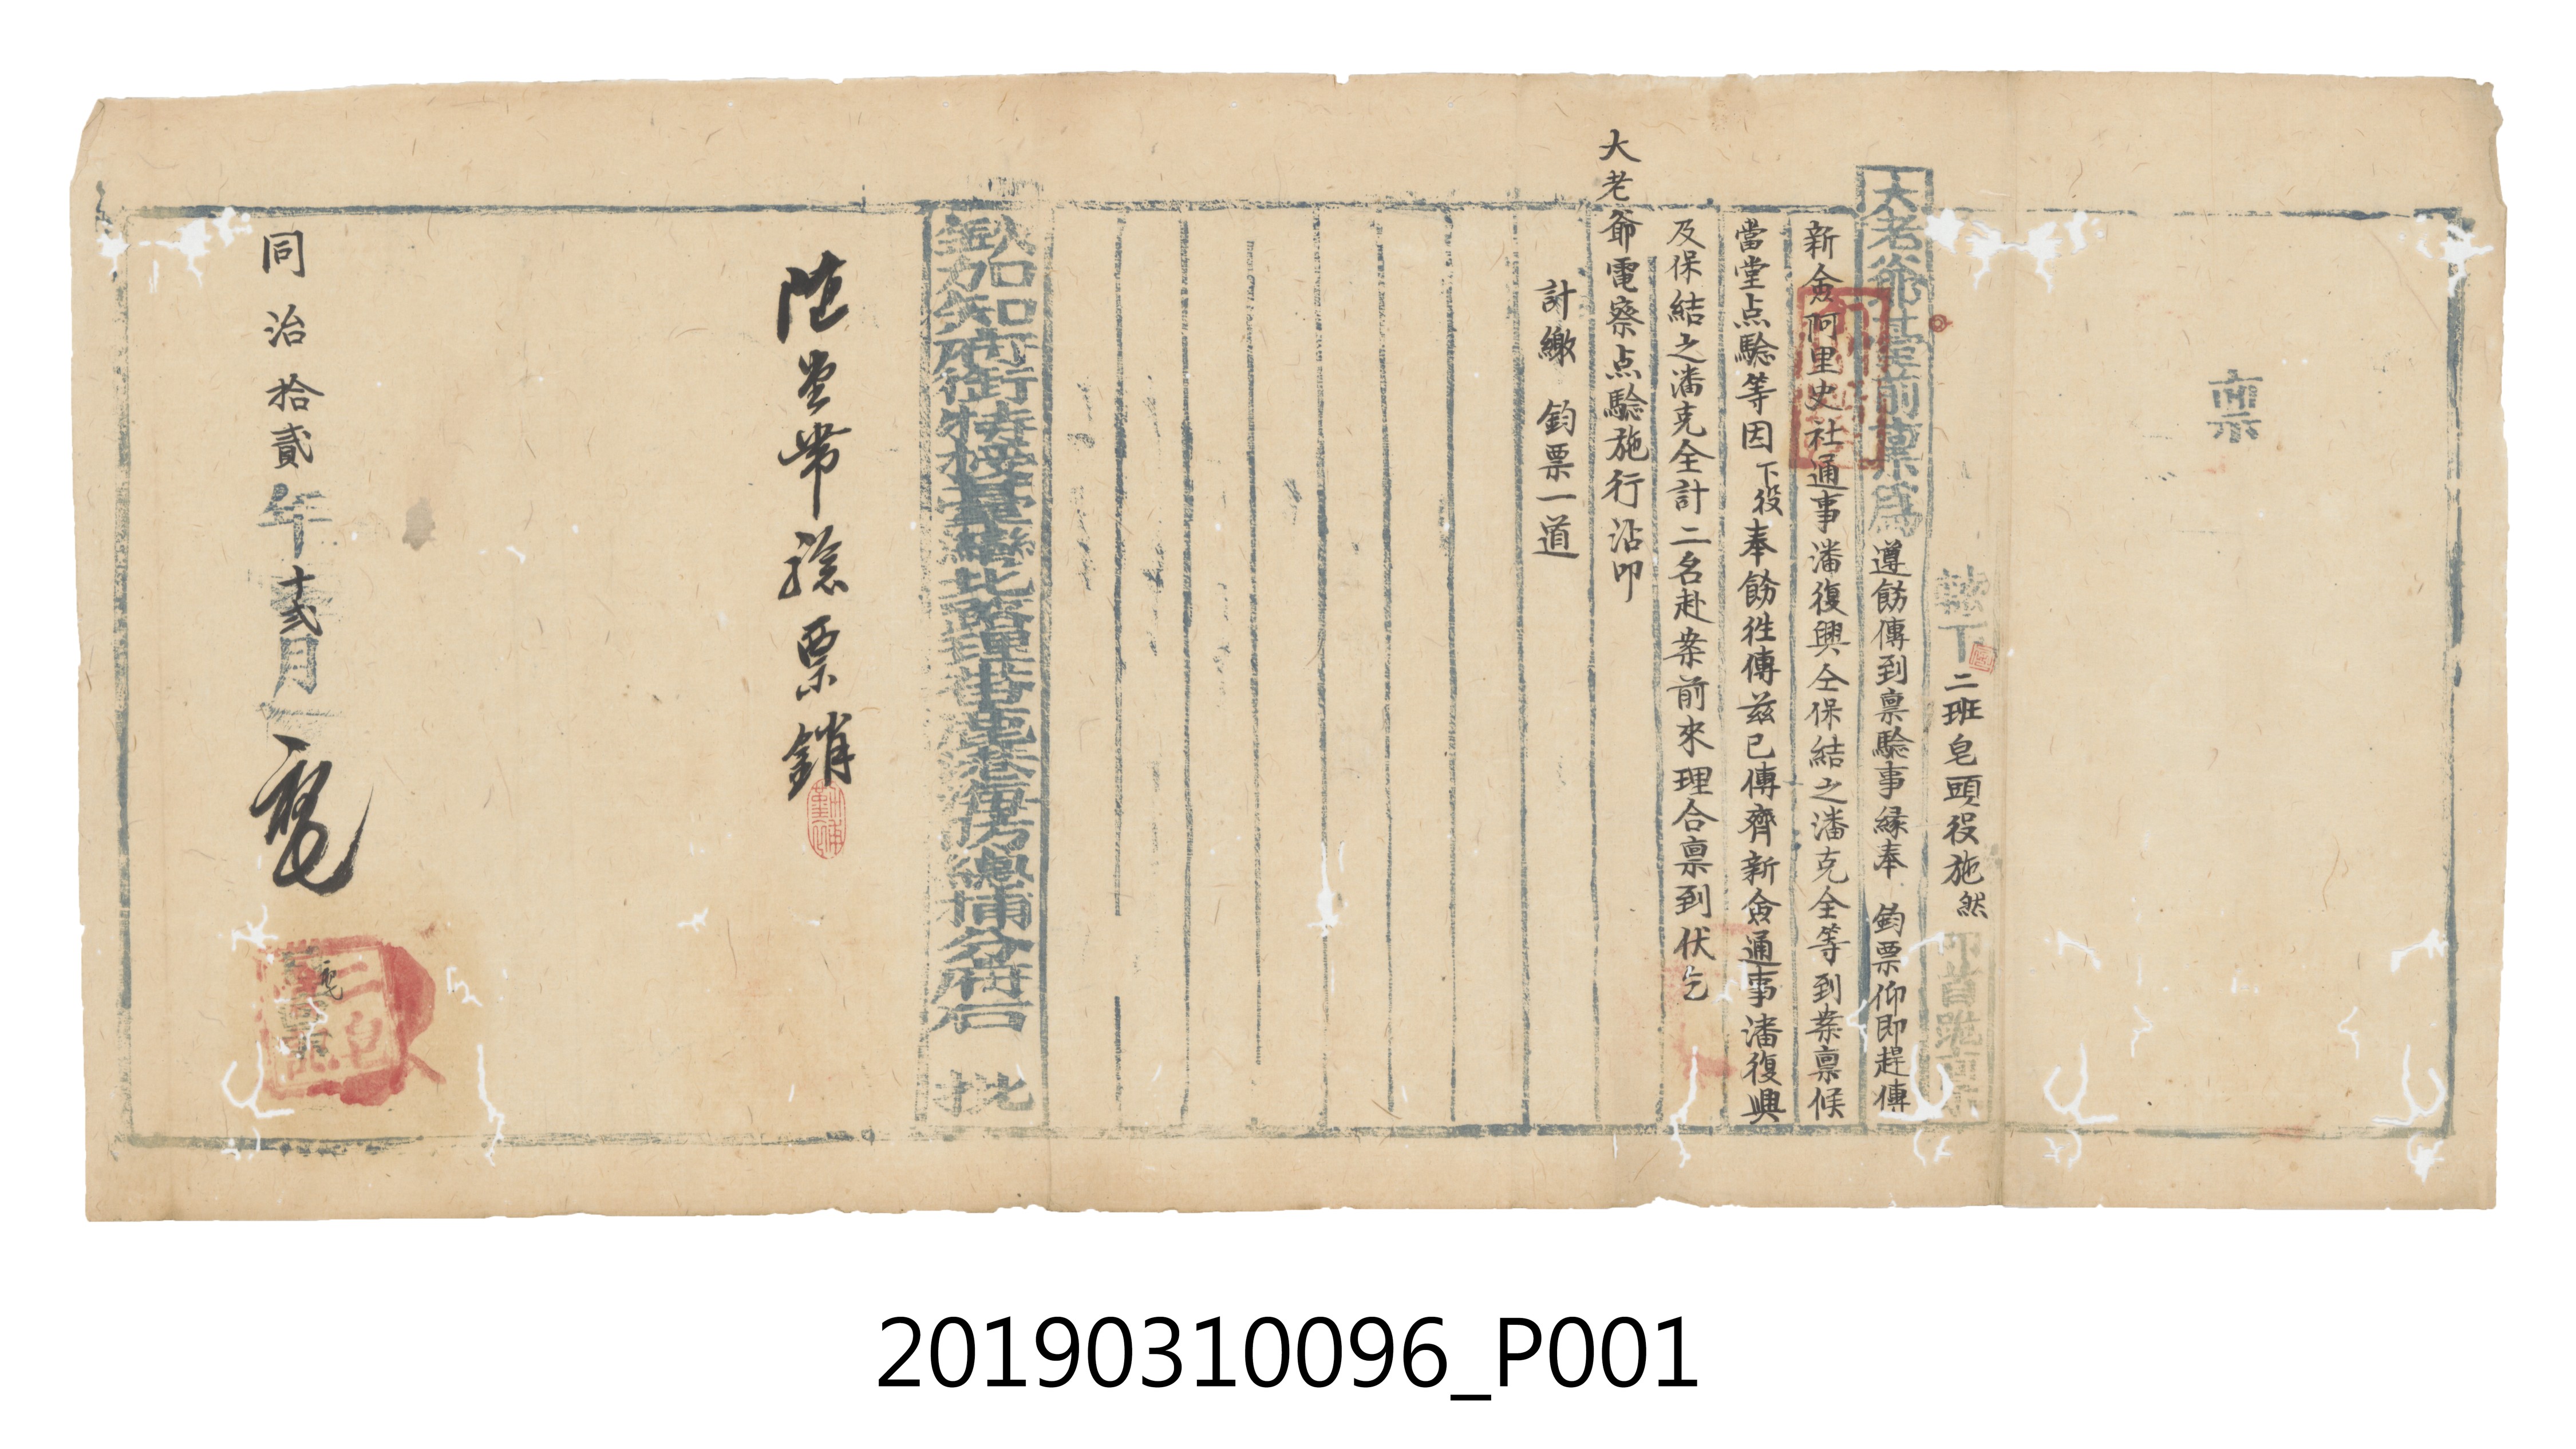 稟
轅下二班皂頭役施然叩首跪稟
大老爺臺前稟為遵飭傳到稟驗事緣奉 鈞票仰即趕傳
新僉阿里史社通事潘復興仝保結之潘克全等到案稟候
當堂点驗等因下役奉飭徃傳兹已傳齊新僉通事潘復興
及保結之潘克全計二名赴案前來理合稟到伏乞
大老爺電察点驗施行沾叩
計繳 鈞票一道
欽加知府銜特授臺灣北路理番駐鹿港海防總捕分府石 批
堂帶驗票銷
同治拾貳年十弍月
二皂
20190310096_P001